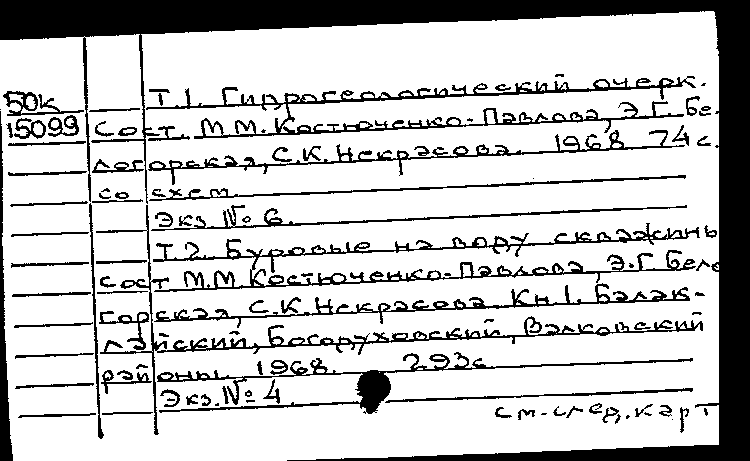 50к Т.1. Гидрогеологический очерк.
15099 Сост. М.М. Костюченко-Павлова, Э.Г. Бе-
логорская, С.К. Некрасова. 1968 74 с.
со схем.
Экз. № 6.
Т.2. Буровые на воду скважины
Сост М.М. Костюченко-Павлова, Э.Г. Бело
горская, С.К. Некрасова. Кн.1. Балак-
лайский, Богодуховский, Валковский
районы. 1968. 293с
Экз. № 4.
см. след. карт